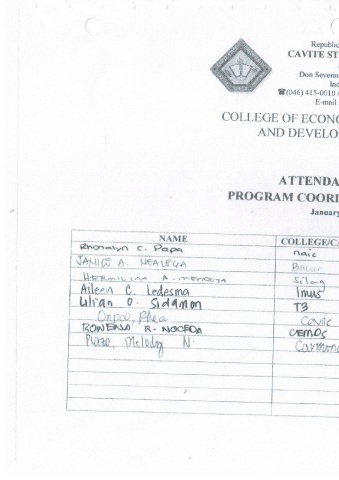 Republic
CAVITE ST
Don Severin
Ind
☎(046) 415-0010 /
E-mail
COLLEGE OF ECONO
AND DEVELO
ATTENDA
PROGRAM COORI
January
NAME COLLEGE/CA
Rhonalyn C. Papa naic
JANICE A.
HERMILINA A. MENDOZA Silang
Aileen C. Ledesma Imus
Lilian O. Sidamon T3
Rhea Cavite
ROWENA R. NOCEDA CEMDS
Plaza, Melody N. Carmona